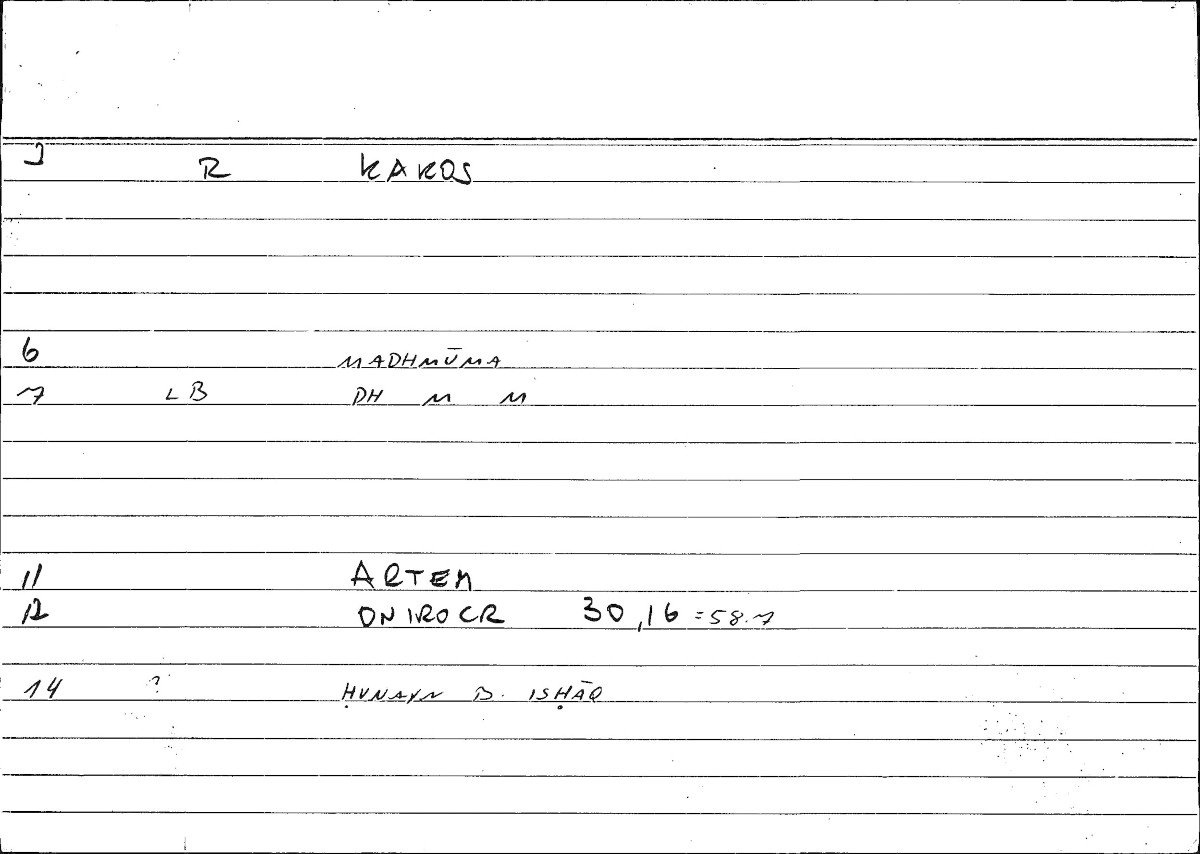 R KAKOS
6 MADHMŪMA
7 LB DH M M
11 ARTEM
12 ONIROCR 30,16 =58.7
14 ? ḤUNAYN B. ISḤĀQ